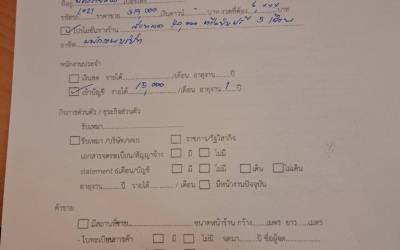 2021 ราคาขาย 319,000 บาท งวดที่ต้อง 6 xxx บาท
☑ โปรโมชั่นทางร้าน 5 เดือน
อาชีพ พนักงานบริษัท
พนักงานประจำ
☐ เงินสด รายได้ /เดือน อายุงาน ปี
☑ เข้าบัญชี รายได้ 15,000 /เดือน อายุงาน 1 ปี
กิจการส่วนตัว / ธุรกิจส่วนตัว
รับเหมา
☐ รับเหมา /บริษัท/หจก ☐ ราชการ/รัฐวิสาหกิจ
เอกสารจดทะเบียน/สัญญาจ้าง ☐ มี ☐ ไม่มี
statement 6เดือน/บัญชี ☐ มี ☐ ไม่มี ☐ เดิน ☐ ไม่เดิน
อายุงาน ปี รายได้ / เดือน ☐ มีหน้างานปัจจุบัน
ค้าขาย
☐ มีสถานที่ขาย ขนาดหน้าร้าน กว้าง เมตร ยาว เมตร
- ใบทะเบียนการค้า ☐ มี ☐ ไม่มี จดมา ปี ชื่อผู้จด